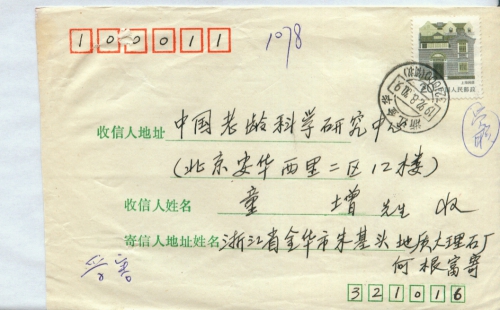 100011
1078
中国人民邮政
浙江金华
收信人地址 中国老龄科学研究中心
(北京安华西里二区12楼)
收信人姓名 童增 先生 收
寄信人地址姓名 浙江省金华市朱基头地质大理石厂
何根富寄
321016